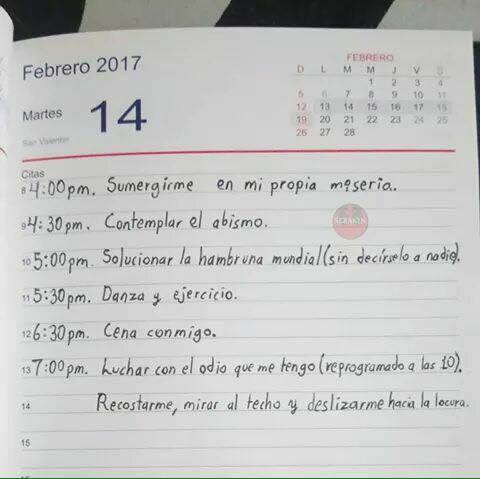 Febrero 2017
Martes
14
San Valentín
FEBRERO
D L M M J V S
1 2 3 4
5 6 7 8 9 10 11
12 13 14 15 16 17 18
19 20 21 22 23 24 25
26 27 28
Citas
8 4:00pm. Sumergirme en mi propia miseria.
9 4:30pm. Contemplar el abismo.
10 5:00pm. Solucionar la hambruna mundial (sin decírselo a nadie).
11 5:30pm. Danza y ejercicio.
12 6:30pm. Cena conmigo.
13 7:00pm. Luchar con el odio que me tengo (reprogramado a las 10).
14 Recostarme, mirar al techo y deslizarme hacia la locura.
15